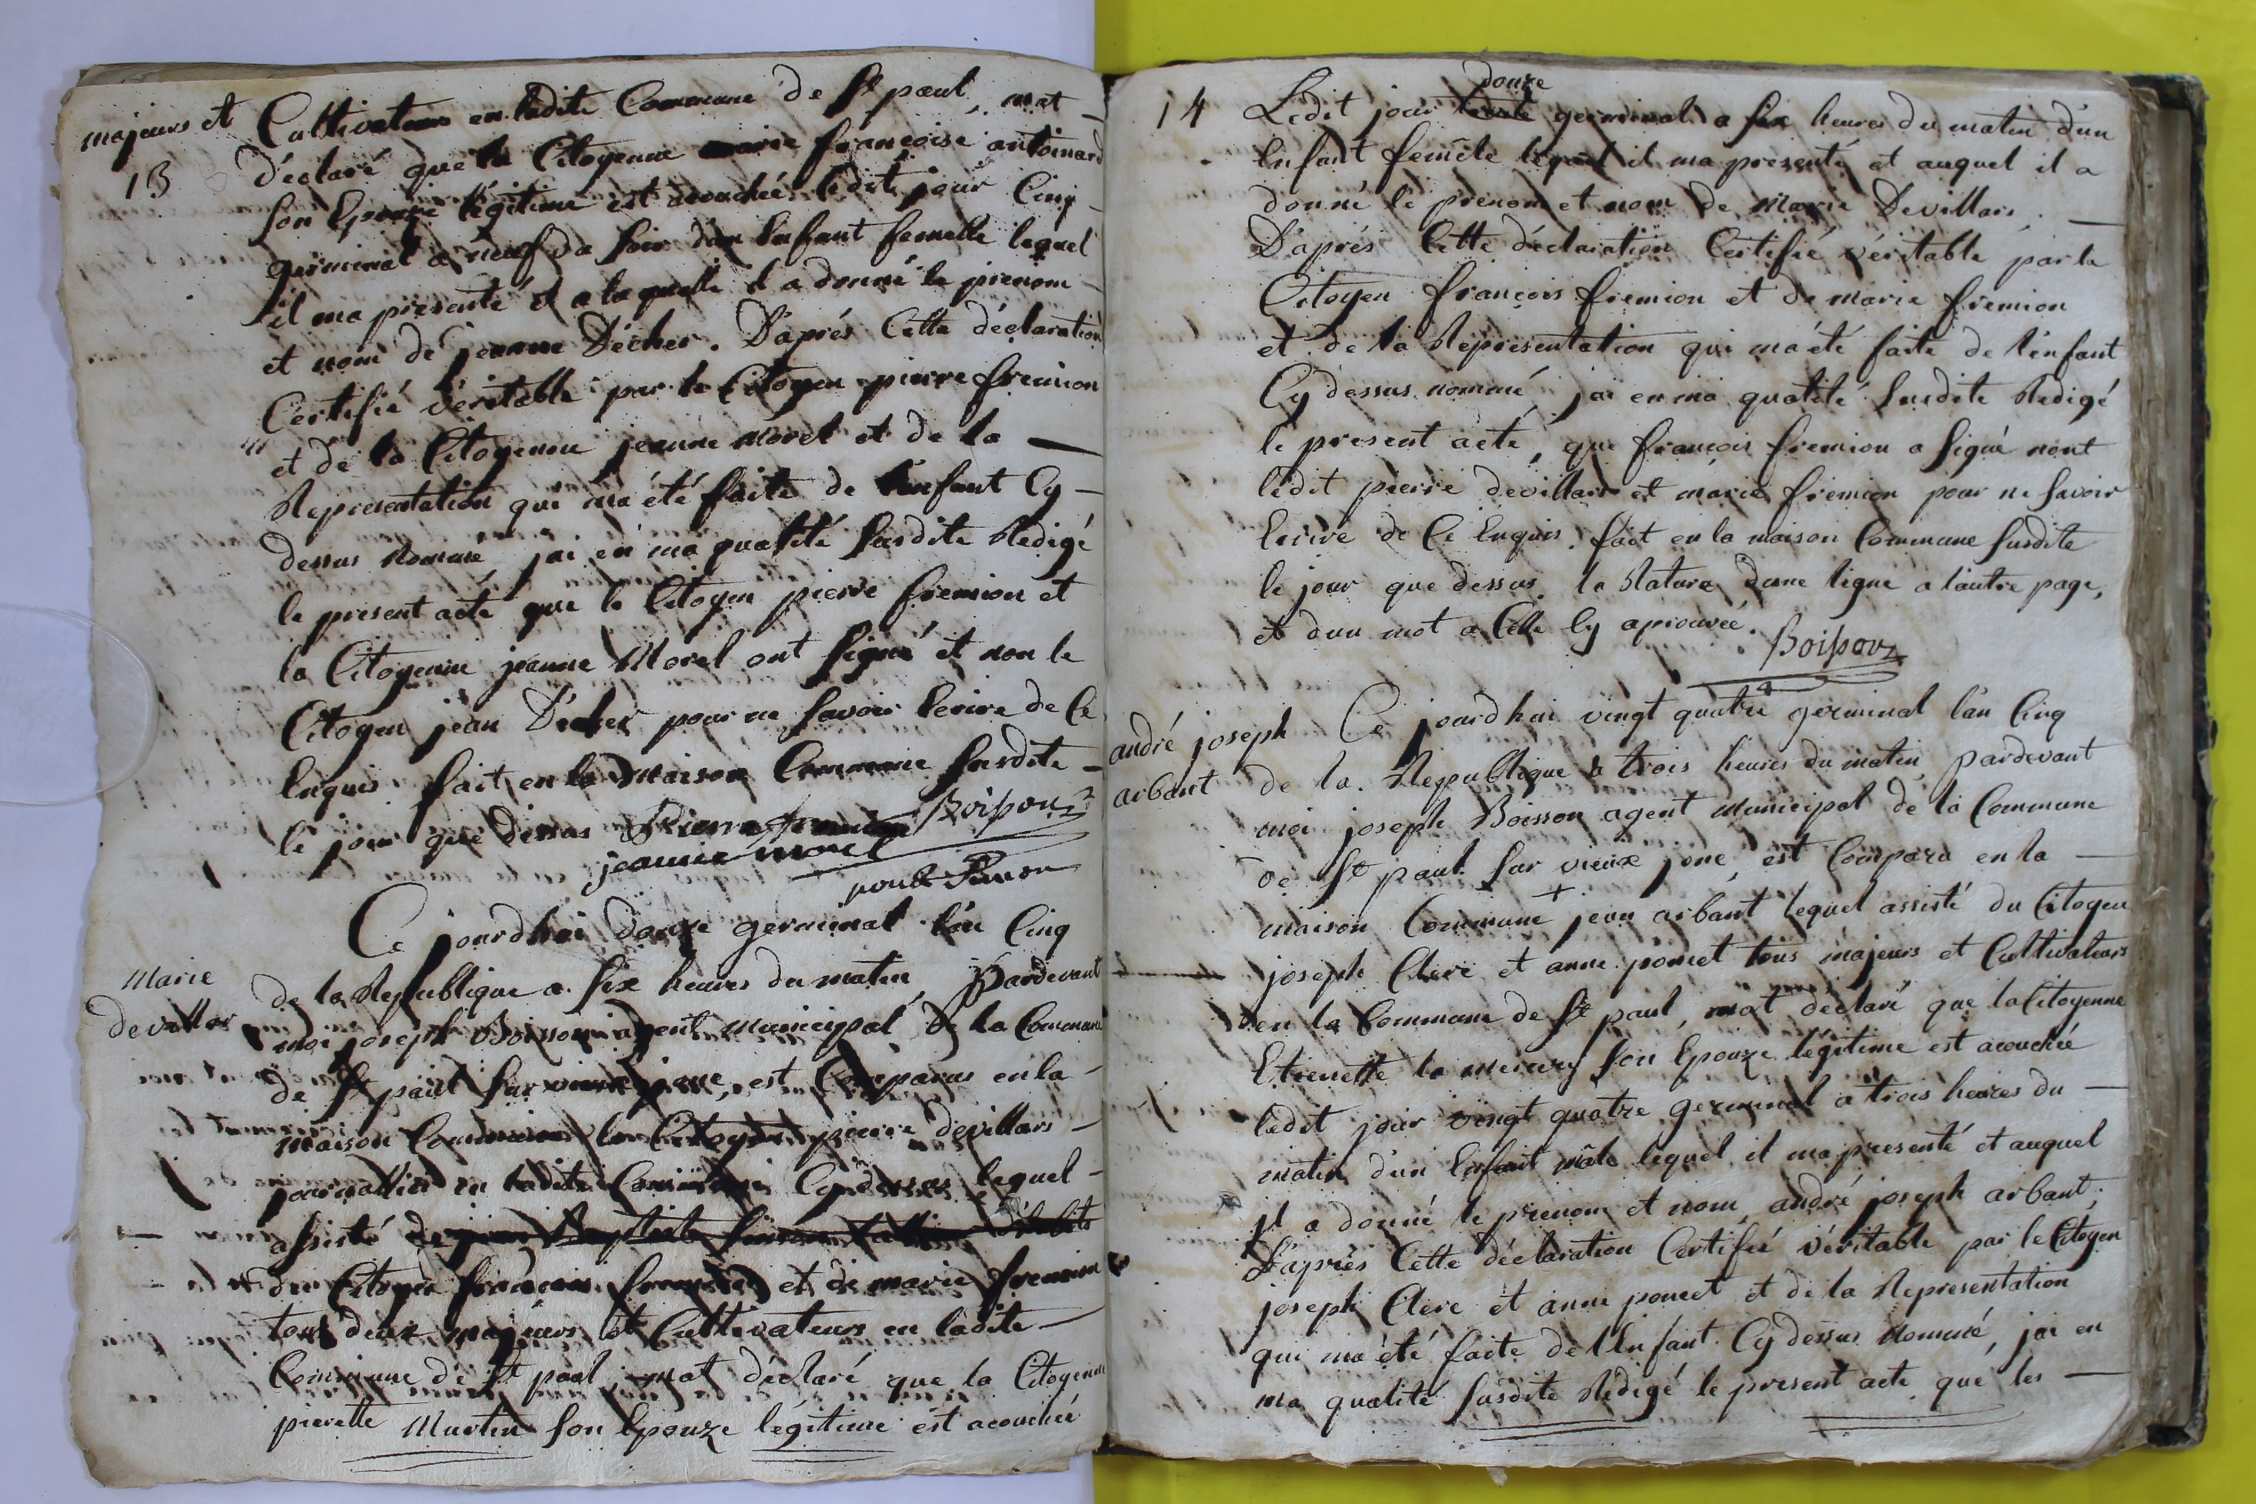 majeurs et
13
Cultivateurs en ladite Commune de St paul, mat
déclaré que la Citoyenne marie françoise antoinard
son Epouze légitime est acouchée ledit jour Cinq
germinal a neuf du soir dun Enfant femelle lequel
il ma presenté et a laquelle il a donné le prenom
et nom de jeanne Décher. D'aprés Cette déclaration
Certifié véritable par le Citoyen pierre fremion
et de la Citoyenne jeanne Morel et de la
Representation qui ma été faite de l'enfant Cy
dessus nommé, jai en ma qualité susdite Redigé
le present acte que le Citoyen pierre fremion et
la Citoyenne jeanne Morel ont signé et non le
Citoyen jean Décher pour ne savoir Ecrire de Ce
Enquis fait en la Maison Commune susdite
le jour que dessus Pierre fremion Boisson
jeanne morel
Marie
devillars
Ce jourdhui douze germinal l'an Cinq
de la Republique a six heures du matin, Pardevant
moi joseph Boisson agent municipal de la Commune
de St paul sur vieux jonc, est Comparus en la
maison Commune le Citoyen pierre devillars
journallier en ladite Commune Cy dessus lequel
assisté
du Citoyen françois fremion et de marie fremion
tous deux majeurs et Cultivateurs en ladite
Commune de St paul, mat déclaré que la Citoyenne
pierrette Martin son Epouze légitime est acouchée
14
douze
Ledit jour germinal a six heures du matin d'un
Enfant femele lequel il ma presenté et auquel il a
donné le prenom et nom de Marie Devillars.
D'aprés Cette déclaration Certifié véritable par le
Citoyen françois fremion et de marie fremion
et de la Representation qui ma été faite de l'enfant
Cy dessus nommé jai en ma qualité susdite Redigé
le present acte, que françois fremion a signé nont
ledit pierre devillars et marie fremion pour ne savoir
Ecrire de Ce Enquis. fait en la maison Commune susdite
le jour que dessus. la Rature dune ligne a l'autre page,
et dun mot a Celle Cy aprouvée.
Boisson
andré joseph
arbant
Ce jourdhui vingt quatre germinal l'an Cinq
de la Republique a trois heures du matin pardevant
moi joseph Boisson agent Municipal de la Commune
de St paul sur vieux jonc, est Comparu en la
maison Commune jean arbant lequel assisté du Citoyen
joseph Clere et anne poncet tous majeurs et Cultivateurs
en la Commune de St paul, mat déclaré que la Citoyenne
Etienette la mercery son Epouze légitime est acouchée
ledit jour vingt quatre germinal a trois heures du
matin d'un Enfant mâle lequel il ma presenté et auquel
il a donné le prenom et nom andré joseph arbant.
D'aprés Cette déclaration Certifié véritable par le Citoyen
joseph Clere et anne poncet et de la Representation
qui ma été faite de l'Enfant Cy dessus Nommé, jai en
ma qualité susdite Rédigé le present acte que les